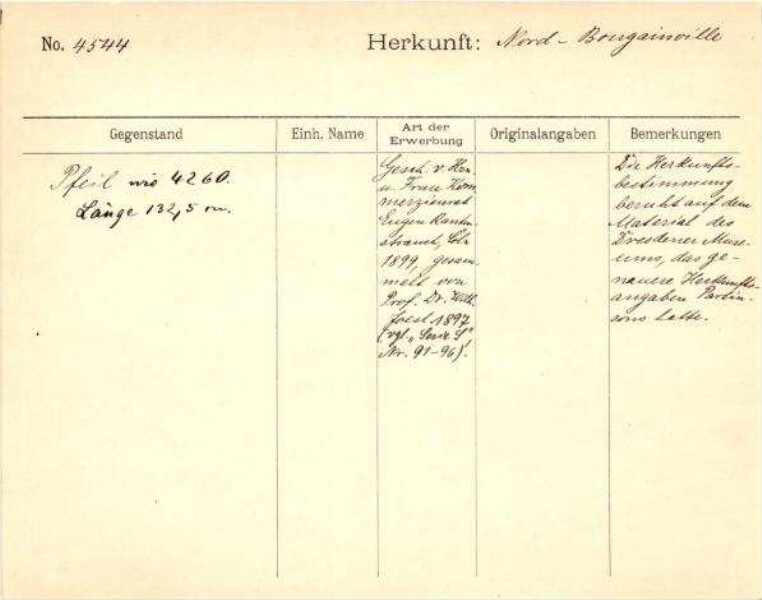 No. 4544
Herkunft: Nord - Bougainville
Gegenstand
Einh. Name
Art der
Erwerbung
Originalangaben
Bemerkungen
Pfeil wie 4260.
Länge 132,5 cm.
Gesch. v. Hrn.
u. Frau Kom
merzienrat
Eugen Rauten
strauch, Cöln
1899, gesam
melt von
Prof. Dr. Wilh.
Joest 1897
(vgl. „Serie S“
Nr. 91-96)!
Die Herkunfts-
bestimmung
beruht auf dem
Material des
Dresdener Muse-
ums, das ge-
nauere Herkunfts-
angaben Parkin-
sons hatte.